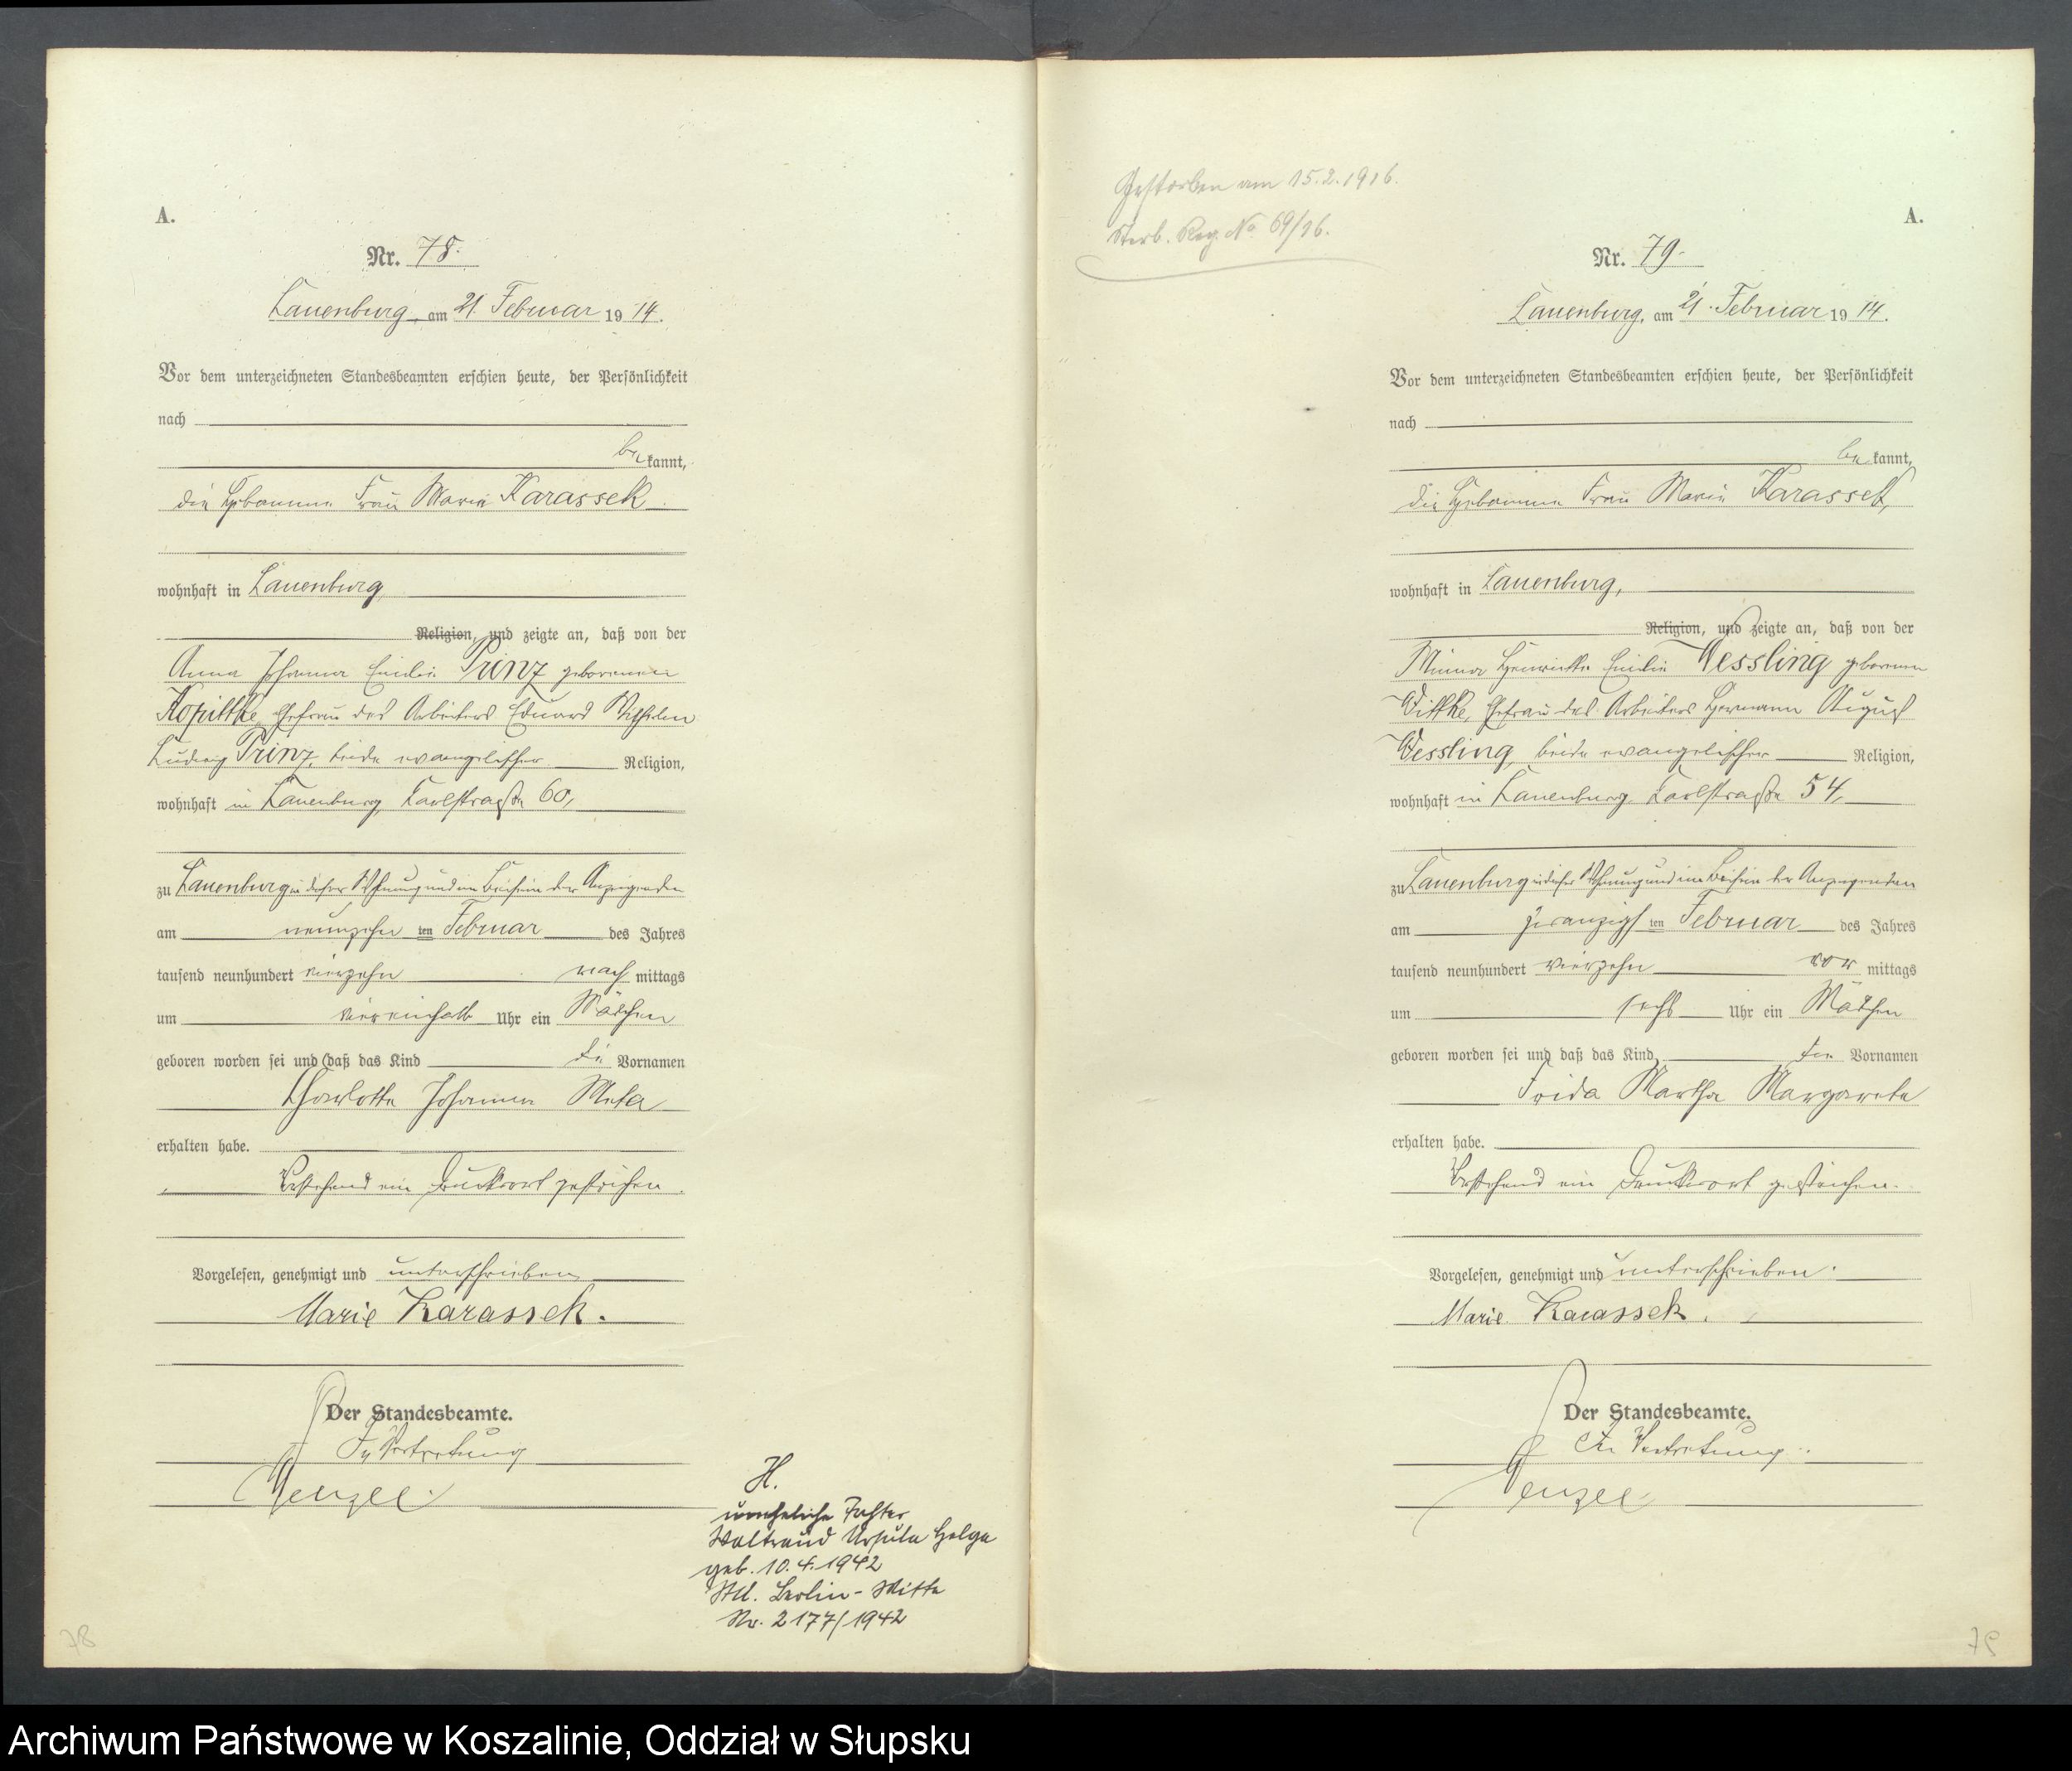 A.
Nr. 78.
Lauenburg, am 21. Februar 1914.
Vor dem unterzeichneten Standesbeamten erschien heute, der Persönlichkeit
nach
bekannt,
die Hebamme Frau Marie Karassek
wohnhaft in Lauenburg
Religion, und zeigte an, daß von der
Anna Johanna Emilie Prinz geborenen
Kopittke, Ehefrau des Arbeiters Eduard Wilhelm
Ludwig Prinz, beide evangelischer Religion,
wohnhaft in Lauenburg, Karlstraße 60,
zu Lauenburg in dieser Wohnung und im Beisein der Anzeigenden
am neunzehnten Februar des Jahres
tausend neunhundert vierzehn nachmittags
um viereinhalb Uhr ein Mädchen
geboren worden sei und daß das Kind die Vornamen
Charlotte Johanna Meta
erhalten habe.
Vorstehend ein Druckwort gestrichen.
Vorgelesen, genehmigt und unterschrieben
Marie Karassek.
Der Standesbeamte.
In Vertretung
Wenzel
H.
uneheliche Tochter
Waltraud Ursula Helga
geb. 10.4.1942
StA. Berlin-Mitte
Nr. 2177/1942
78
Gestorben am 15.2.1916.
Sterb. Reg. No 69/16.
A.
Nr. 79.
Lauenburg, am 21. Februar 1914.
Vor dem unterzeichneten Standesbeamten erschien heute, der Persönlichkeit
nach
bekannt,
die Hebamme Frau Marie Karassek,
wohnhaft in Lauenburg,
Religion, und zeigte an, daß von der
Minna Henriette Emilie Wessling geborenen
Wittke, Ehefrau des Arbeiters Hermann August
Wessling, beide evangelischer Religion,
wohnhaft in Lauenburg, Karlstraße 54,
zu Lauenburg in dieser Wohnung und im Beisein der Anzeigenden
am zwanzigsten Februar des Jahres
tausend neunhundert vierzehn vormittags
um sechs Uhr ein Mädchen
geboren worden sei und daß das Kind die Vornamen
Frida Martha Margarete
erhalten habe.
Vorstehend ein Druckwort gestrichen.
Vorgelesen, genehmigt und unterschrieben.
Marie Karassek.
Der Standesbeamte.
In Vertretung.
Wenzel
79
Archiwum Państwowe w Koszalinie, Oddział w Słupsku